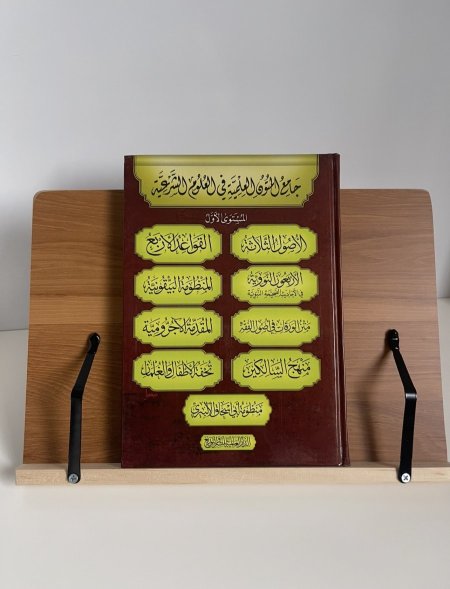 جامع المتون العلمية في العلوم الشرعية
المستوى الأول
الأصول الثلاثة
القواعد الأربع
الأربعون النووية
في الأحاديث الصحيحة النبوية
المنظومة البيقونية
متن الورقات في أصول الفقه
المقدمة الآجرومية
منهج السالكين
تحفة الأطفال والغلمان
منظومة أبي إسحاق الإلبيري